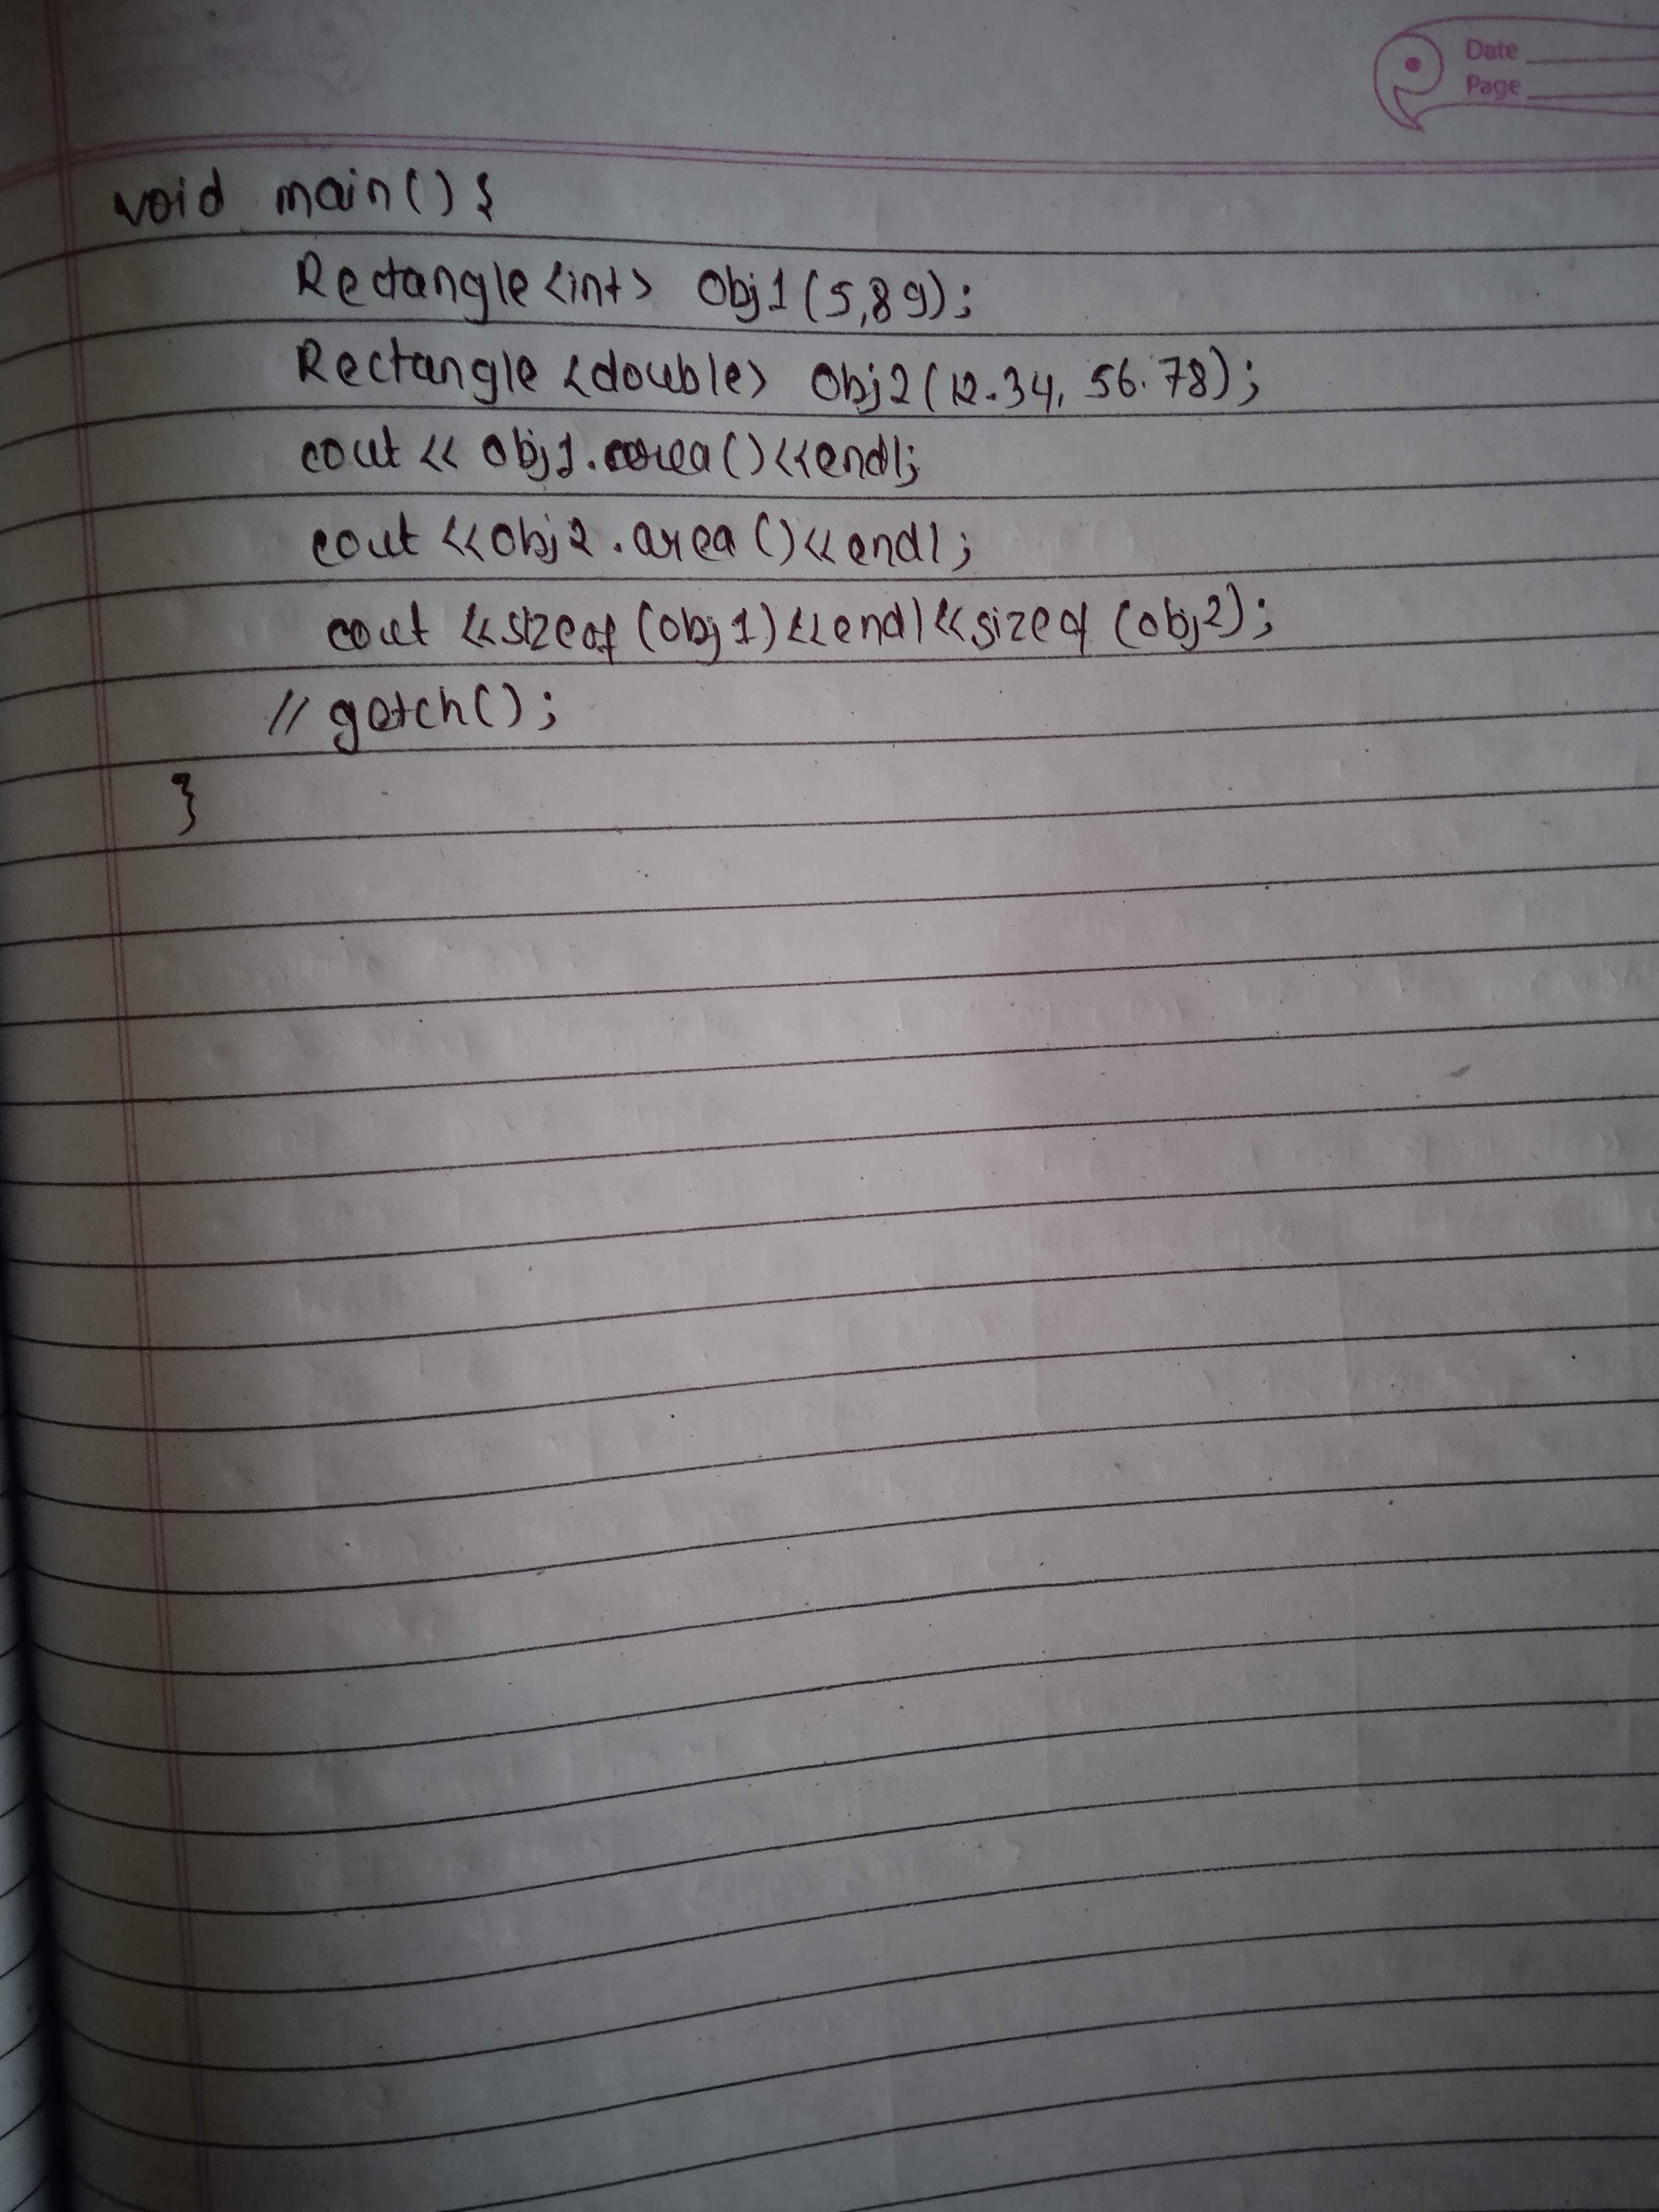 Date
Page
void main() {
Rectangle<int> Obj1(5,89);
Rectangle <double> Obj2(12.34, 56.78);
cout << Obj1.area()<<endl;
cout <<Obj2.area()<<endl;
cout <<sizeof(obj1)<<endl<<sizeof (obj2);
// getch();
}